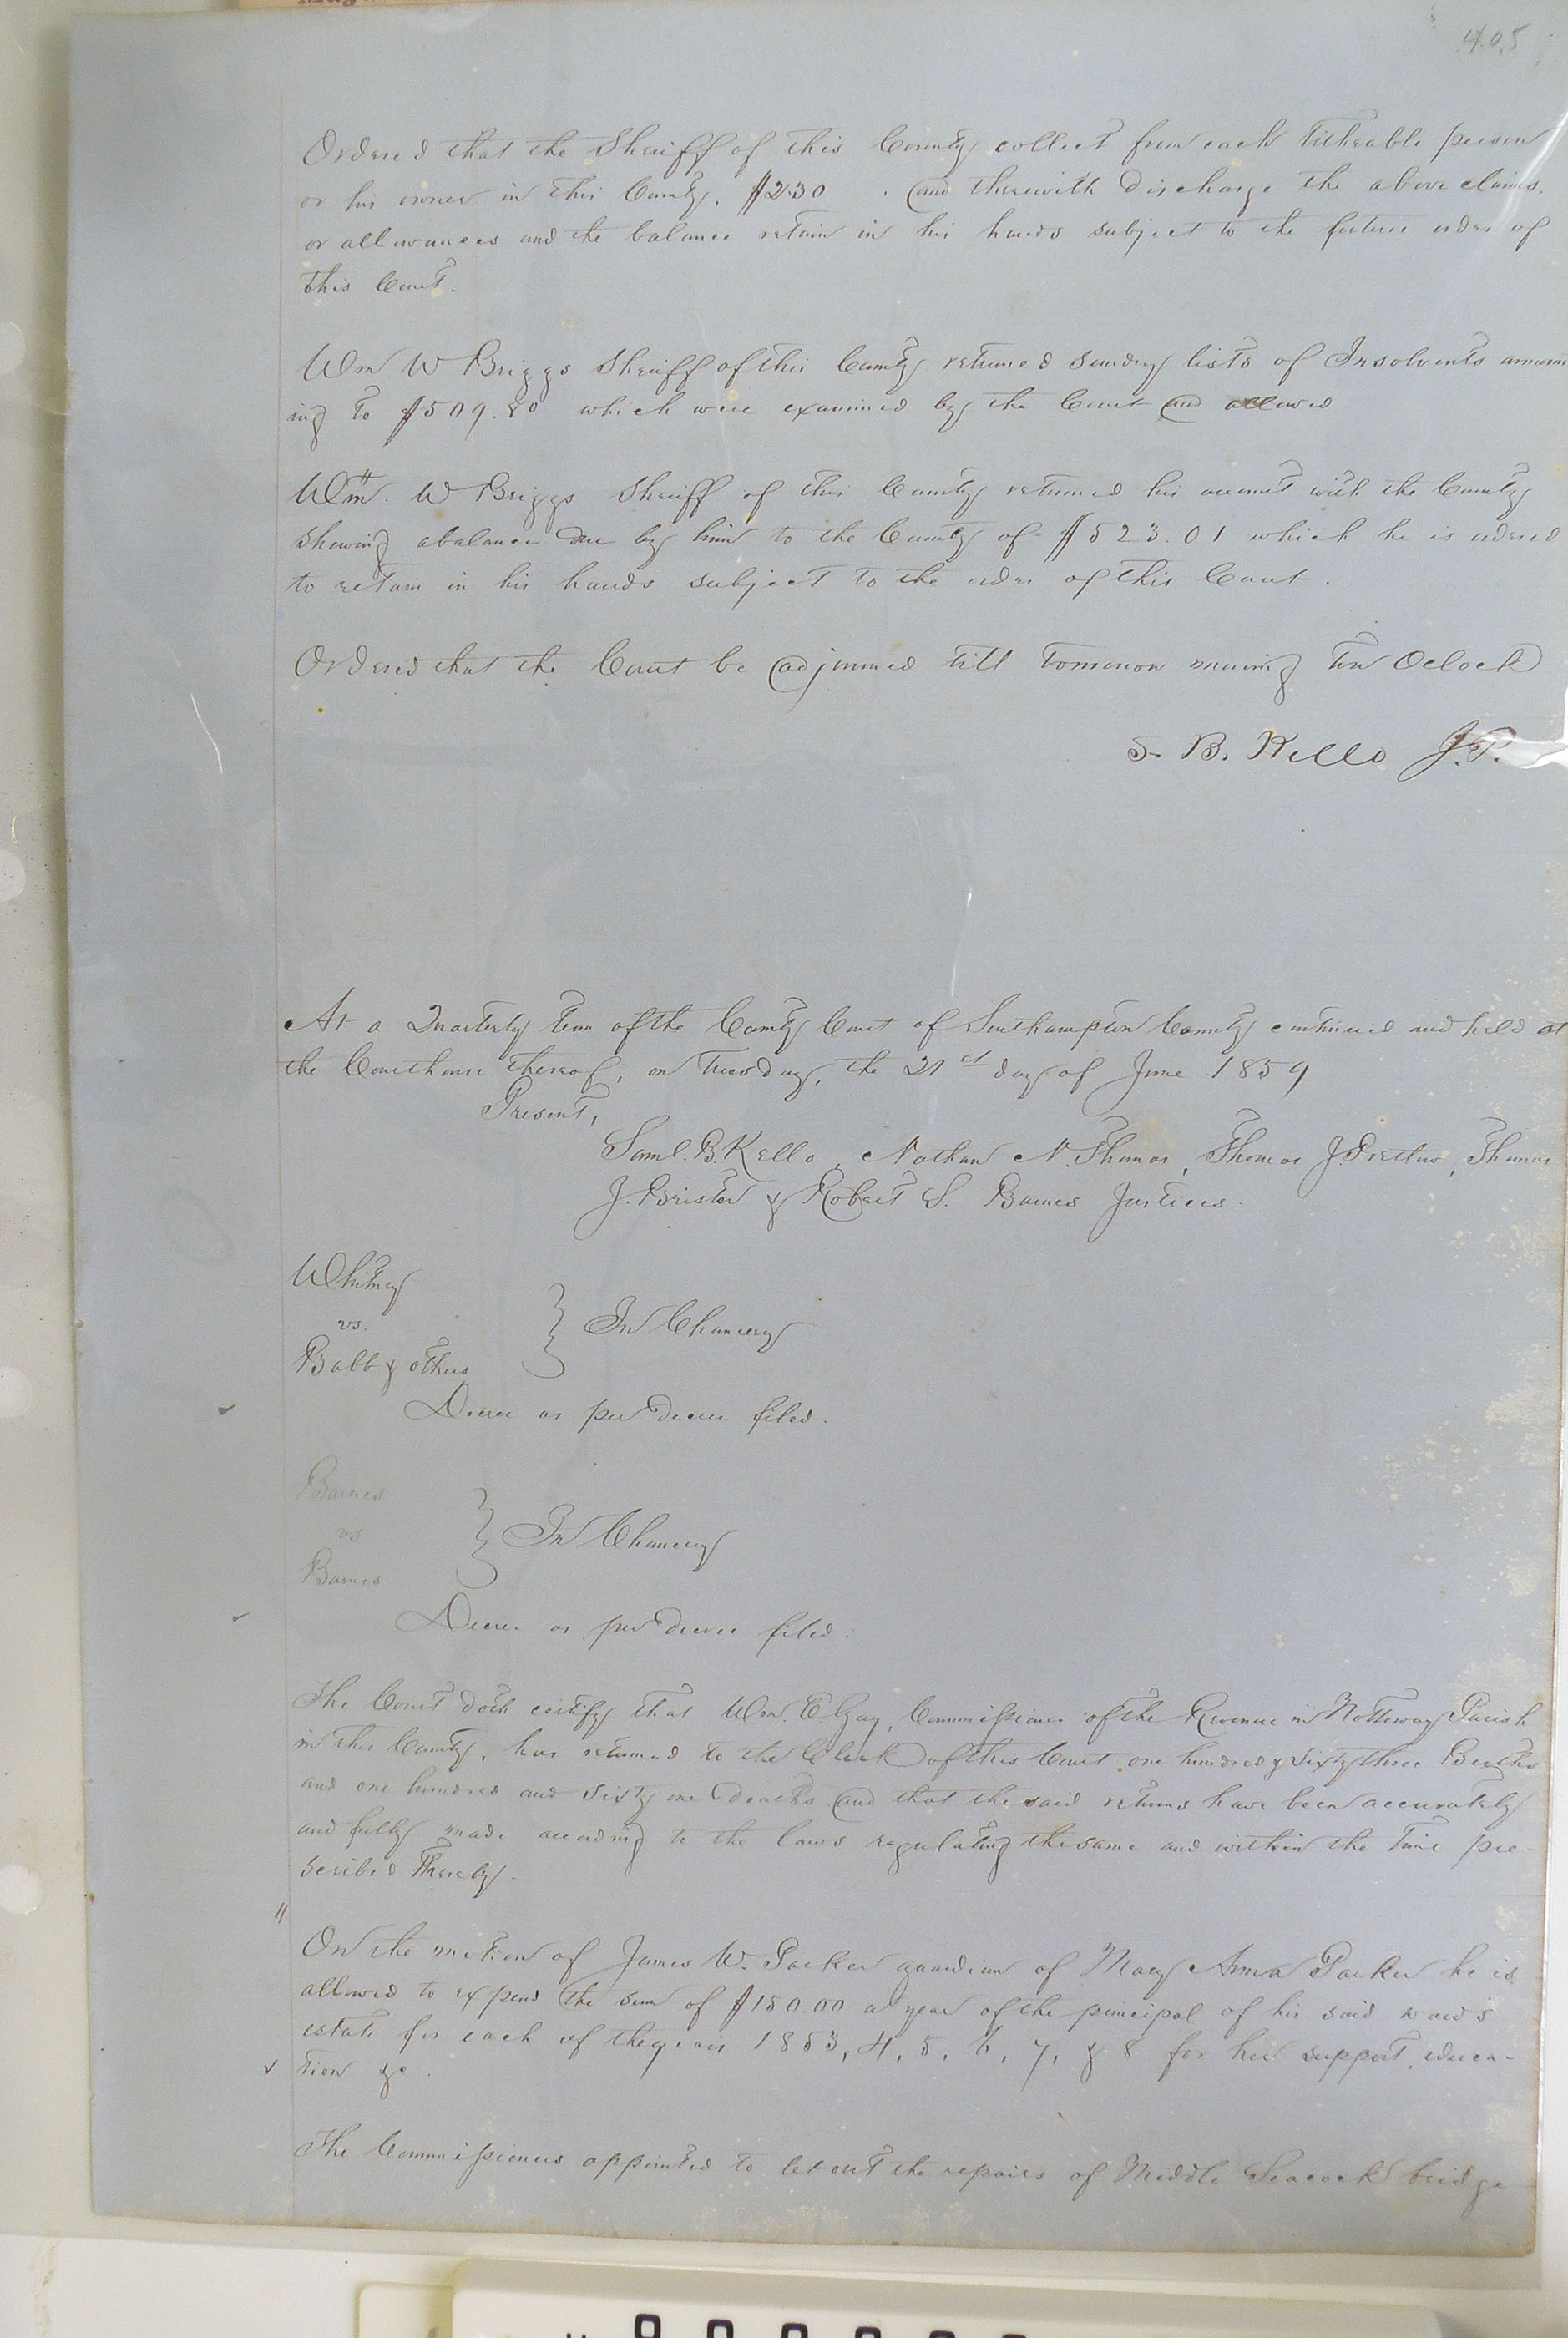 405
Ordered that the Sheriff of this County collect from each titheable person
or his owner in this County, $2.30 . and therewith discharge the above claims.
or allowances and the balance retain in his hands subject to the future order of
this Court.
Wm W Briggs Sheriff of this County returned sundry lists of Insolvents amount
ing to $509.80 which were examined by the Court and allowed
Wm. W Briggs Sheriff of this County returned his account with the County
shewing a balance due by him to the County of $523.01 which he is ordered
to retain in his hands subject to the order of this Court.
Ordered that the Court be adjourned till tomorrow morning ten Oclock
S. B. Kello J.P.
At a Quarterly term of the County Court of Southampton County continued and held at
the Courthouse thereof, on Tuesday, the 21st day of June 1859
Present,
Saml. B. Kello, Nathan N. Thomas, Thomas J. Pretlow, Thomas
J. Bristor & Robert S. Barnes Justices.
Whitney
vs.
Babb & others
} In Chancery
Decree as per decree filed.
Barnes
vs
Barnes
} In Chancery
Decree as per decree filed.
The Court doth certify that Wm. E. Gay, Commissioner of the Revenue in Nottoway Parish
in this County, has returned to the Clerk of this Court one hundred & sixty three Births
and one hundred and sixty one deaths and that the said returns have been accurately
and fully made according to the laws regulating the same and within the time pre-
scribed thereby.
"
On the motion of James W. Parker guardian of Mary Anna Parker he is
allowed to expend the sum of $150.00 a year of the principal of his said ward's
estate for each of the years 1853, 4, 5, 6, 7, & 8 for her support, educa-
tion &c.
The Commissioners appointed to let out the repairs of Middle Seacock bridge